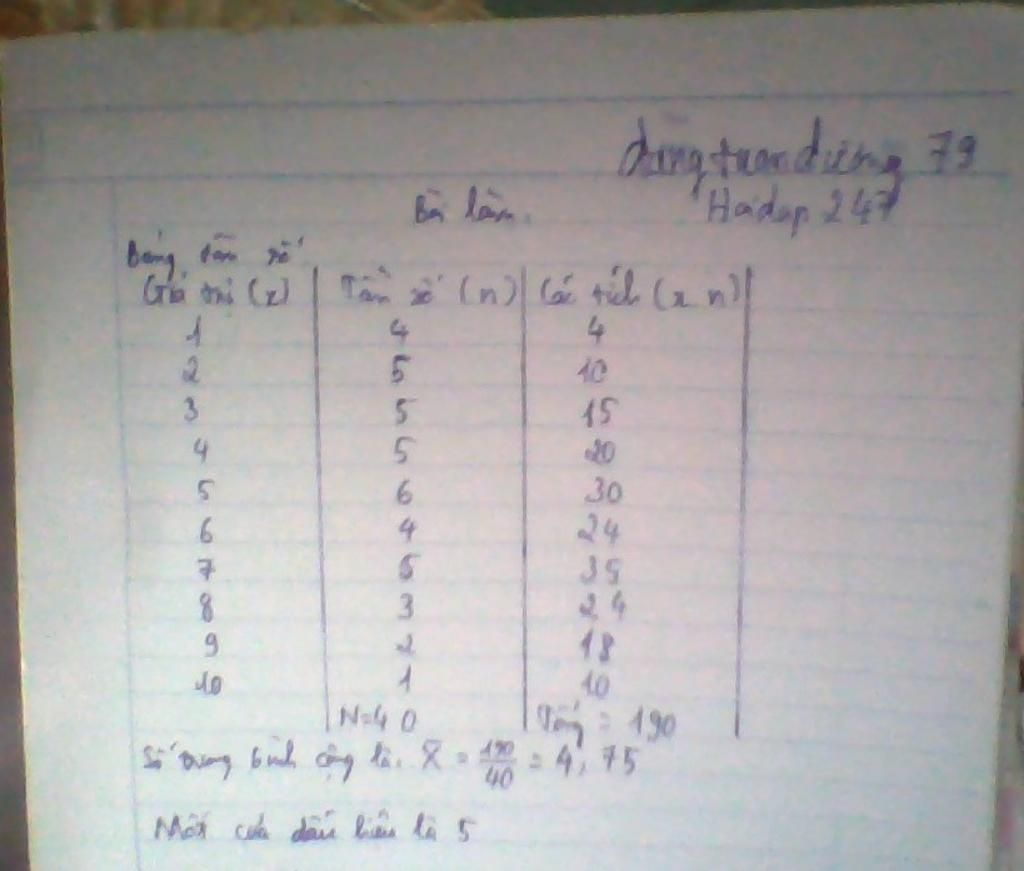 dungtuanduong 79
Hoidap 247
Bài làm.
Bảng tần số
Giá trị (x) Tần số (n) Các tích (x n)
1 4 4
2 5 10
3 5 15
4 5 20
5 6 30
6 4 24
7 5 35
8 3 24
9 2 18
10 1 10
N=40 Tổng = 190
Số trung bình cộng là. X̄ = 190/40 = 4,75
Mốt của dấu hiệu là 5